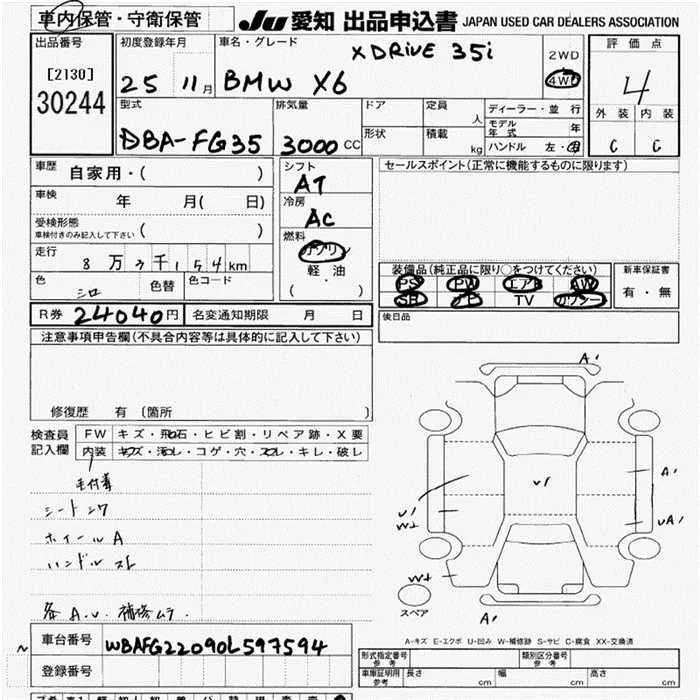 車内保管・守衛保管
JU 愛知 出品申込書 JAPAN USED CAR DEALERS ASSOCIATION
出品番号
[2130]
30244
初度登録年月
25 11月
車名・グレード
X DRIVE 35i
BMW X6
2WD
4WD
評価点
4
外装 内装
C C
型式
DBA-FG35
排気量
3000 CC
ドア
形状
定員 人
積載 kg
ディーラー・並行
モデル年式 年
ハンドル 左・右
車歴 自家用・( )
車検 年 月( 日)
受検形態
車検付きのみ記入して下さい ( )
走行
8万3千154km
色 シロ 色替 色コード
シフト
AT
冷房
AC
燃料
ガソリン
軽油
( ・ )
セールスポイント(正常に機能するものに限ります)
装備品(純正品に限り○をつけてください)
PS PW エアB AW
SR ナビ TV カワシート
新車保証書
有・無
R券 24040円 名変通知期限 月 日
後日品
注意事項申告欄(不具合内容等は具体的に記入して下さい)
修復歴 有 〔箇所 〕
検査員記入欄
FW キズ・飛石・ヒビ割・リペア跡・X要
内装 キズ・汚レ・コゲ・穴・スレ・キレ・破レ
シート シワ
ホイール A
ハンドル スレ
各 A.U. 補修ムラ.
A1
A1
U1
U1
W2
UA1
W2
A1
スペア
A-キズ E-エクボ U-凹み W-補修跡 S-サビ C-腐食 XX-交換済
車台番号 WBAFG22090L597594
登録番号
型式指定番号
参考
類別区分番号
参考
車庫証明用
参考
長さ cm 幅 cm 高さ cm